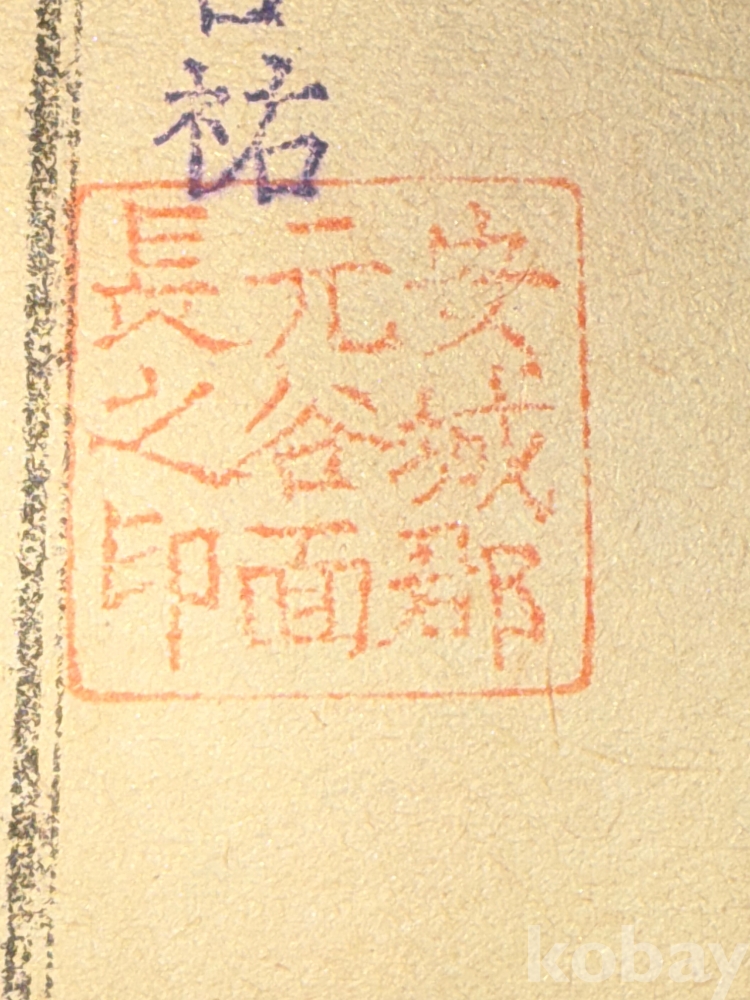 祐
安城郡
元谷面
長之印
kobay